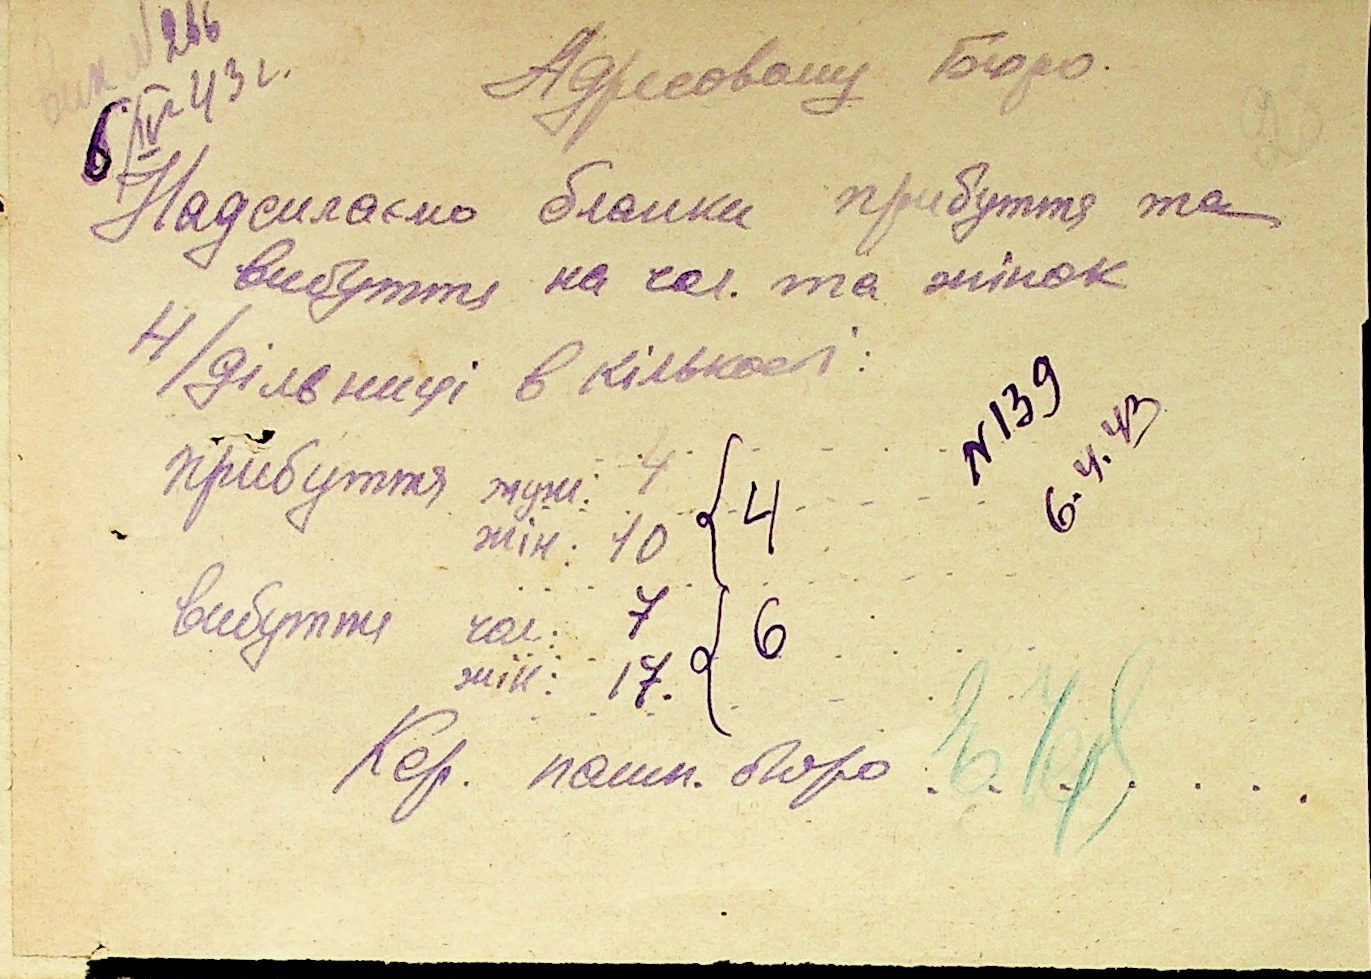 Вих N 266
6/IV-43 г.
Адресовому Бюро.
Надсилаємо бланки прибуття та
вибуття на чол. та жінок
Н/дільниці в кількості:
N 139
6.4.43
прибуття муж: 4
жін: 10
4
вибуття чол: 7
жін: 17.
6
Кер. пашп. бюро